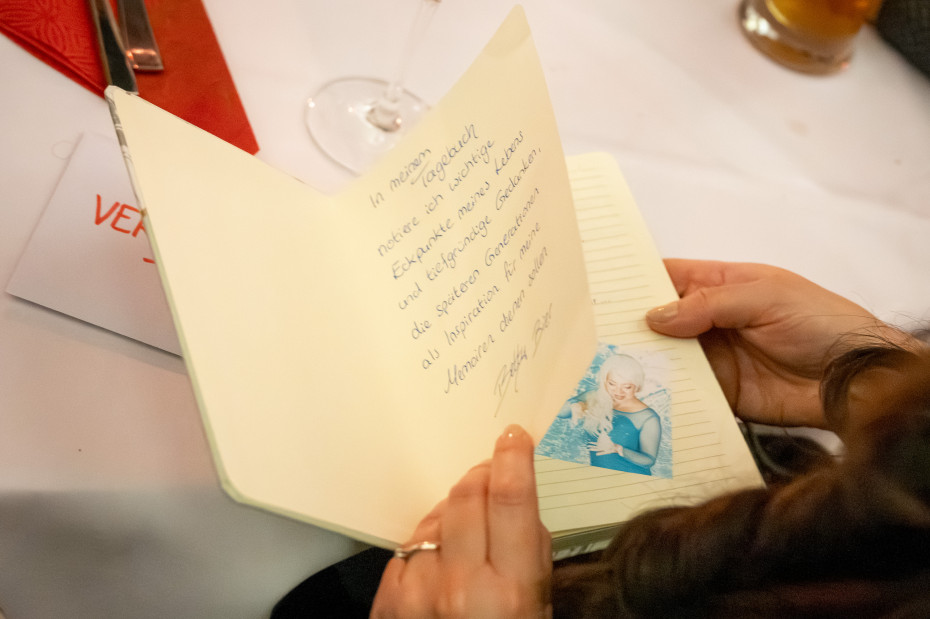 In meinem
Tagebuch
notiere ich wichtige
Eckpunkte meines Lebens
und tiefgründige Gedanken,
die späteren Generationen
als Inspiration für meine
Memoiren dienen sollen
Betty Bier
VER